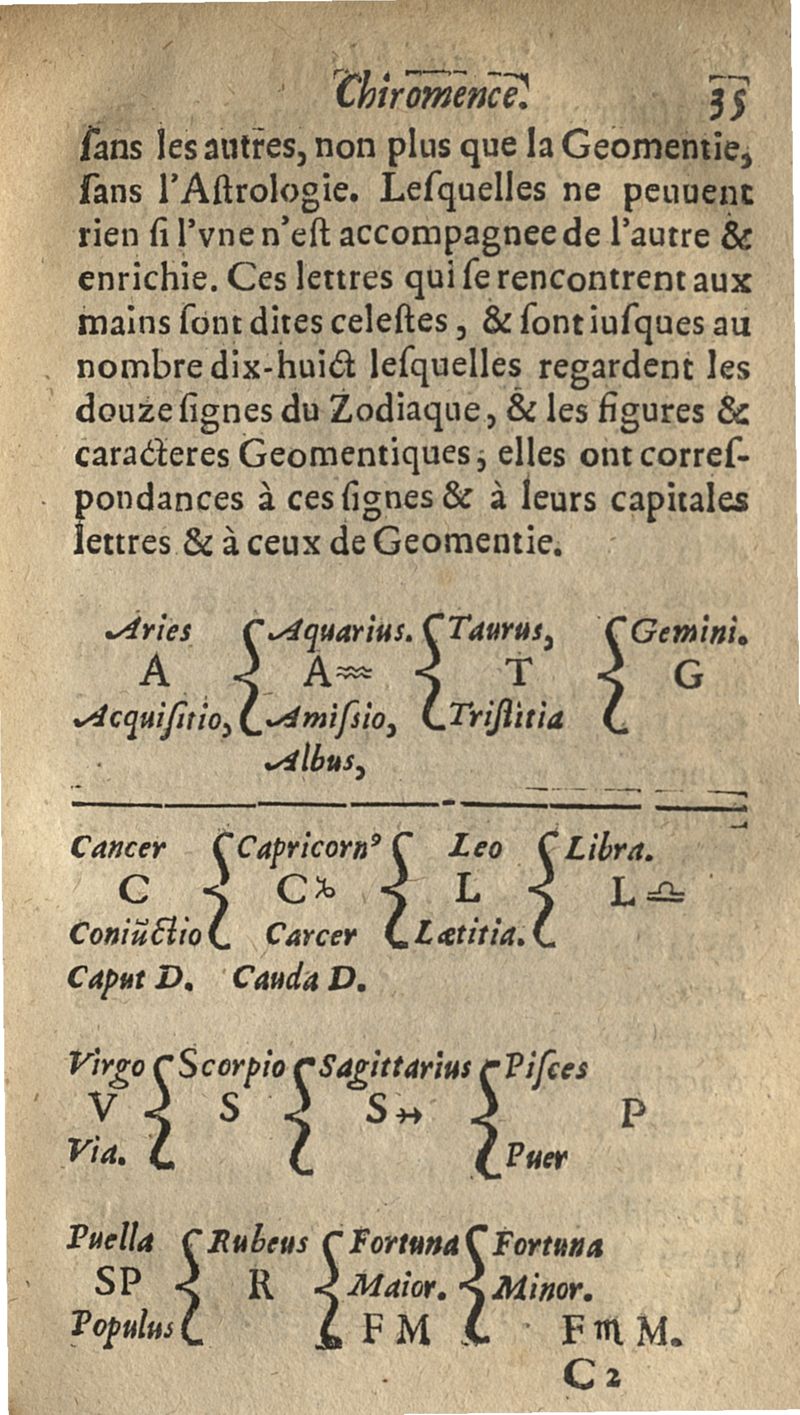 Chiromence. 35
ſans les autres, non plus que la Geomentie,
ſans l'Aſtrologie. Leſquelles ne peuuent
rien ſi l'vne n'eſt accompagnee de l'autre &
enrichie. Ces lettres qui ſe rencontrent aux
mains ſont dites celeſtes, & ſont iuſques au
nombre dix-huict leſquelles regardent les
douze ſignes du Zodiaque, & les figures &
caracteres Geomentiques; elles ont correſ-
pondances à ces ſignes & à leurs capitales
lettres & à ceux de Geomentie.
Aries { Aquarius. { Taurus, { Gemini.
A { A♒ { T { G
Acquiſitio, { Amiſsio, { Triſtitia {
Albus,
Cancer { Capricornꝰ { Leo { Libra.
C { C♑ { L { L♎
Coniũctio { Carcer { Lætitia. {
Caput D. Cauda D.
Virgo { Scorpio { Sagittarius { Piſces
V { S { S↣ { P
Via. { { { Puer
Puella { Rubeus { Fortuna { Fortuna
SP { R { Maior. { Minor.
Populus { { F M { F m M.
C 2